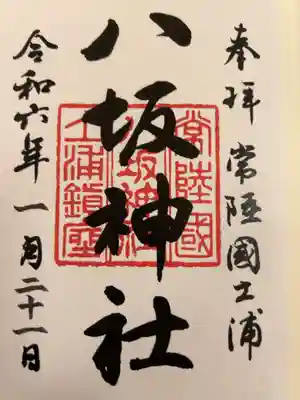 奉拝 常陸國土浦
八坂神社
常陸國
八坂神社
土浦鎮座
令和六年一月二十一日